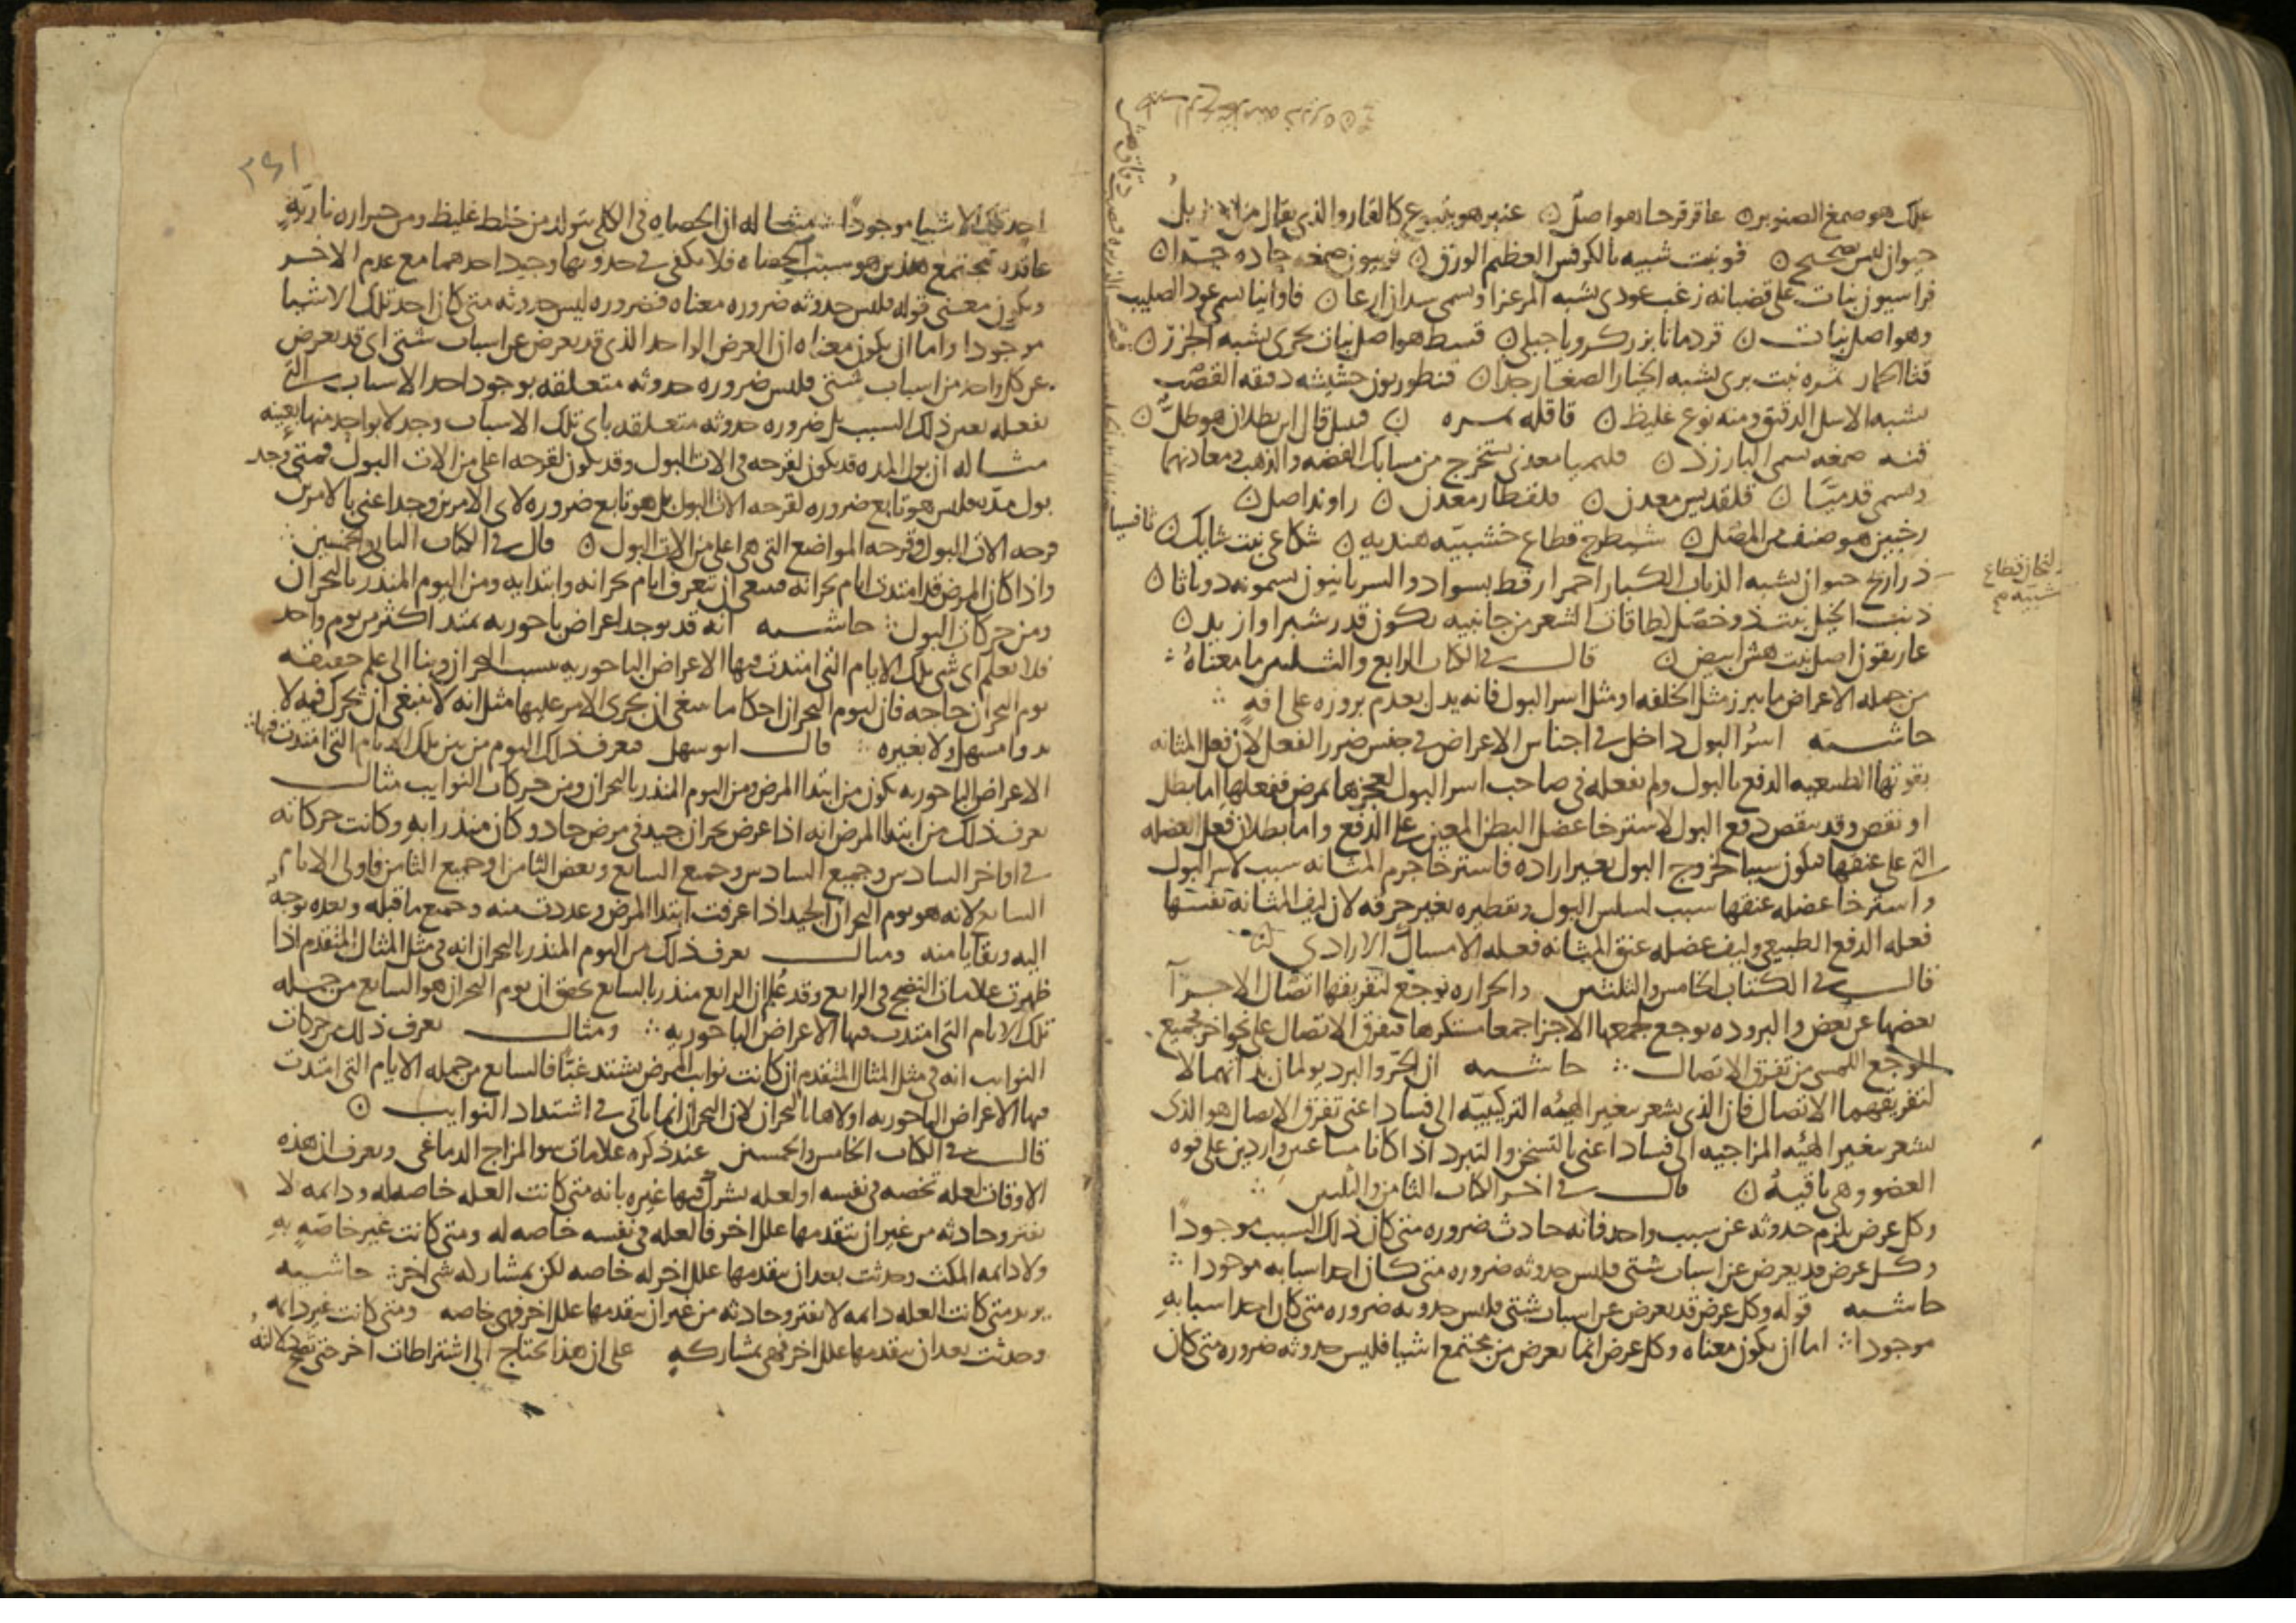 علك هو صمغ الصنوبر ن عاقرقرحا هو اصل ن عنبر هو ينبوع كالقار والذي يقال من انه زبل
حيوان ليس بصحيح ن فو نبت شبيه بالكرفس العظيم الورق ن فربيون صمغه حاده جدا ن
فراسيون نبات على قضبانه زغب عودي يشبه المرعزا ويسمى فاوانيا يسمى عود الصليب
وهو اصل نبات ن قردمانا بزر كرويا جبلي ن قسط هو اصل نبات بحري يشبه الجزر ن
قثا الحمار ثمره نبت بري يشبه الخيار الصغار جدا ن قنطوريون حشيشه دقيقه القضب
يشبه الاسل الدقيق ومنه نوع غليظ ن قاقله ثمره ن قيل قال ابن بطلان هو طل ن
قنه صمغه تسمى البارزد ن قليميا معدني يستخرج من مسابك الفضه والذهب ومعادنهما
وتسمى قدميا ن قلقديس معدن ن قلقطار معدن ن راوند اصل ن
رخبين هو صنف من المصل ن شيطرج قطاع خشبيه هنديه ن شكاعى نبت شايك ن ثافسيا
ذراريح حيوان يشبه الذباب الكبار احمر ارقط بسواد والسريانيون يسمونه دوباثا ن
ذنب الخيل نبت ذو خصل لطاقات الشعر من جانبيه يكون قدر شبر او ازيد ن
غاريقون اصل نبت هش ابيض ن قال في الكتاب الرابع والثلثين ما معناه
من جمله الاعراض ما يبرز مثل الخلفه او مثل اسر البول فانه يدل بعدم بروزه على افه
حاشيه اسر البول داخل في اجناس الاعراض في جنس ضرر الفعل لان فعل المثانه
بقوتها الطبيعيه الدفع بالبول ولم تفعله في صاحب اسر البول لعجزها بمرض ففعلها اما بطل
او نقص وقد ينقص دفع البول لاسترخا عضل البطن المعين على الدفع واما بطلان فعل العضله
التي على عنقها فيكون سببا لخروج البول بغير اراده فاسترخا جرم المثانه سبب لاسر البول
واسترخا عضله عنقها سبب لسلس البول وتقطيره بغير حرقه لان ليف المثانه نفسها
فعله الدفع الطبيعي وليف عضله عنق المثانه فعله الامساك الارادي
قال في الكتاب الخامس والثلثين والحراره توجع لتفريقها اتصال الاجزا
بعضها عن بعض والبروده توجع لجمعها الاجزا جمعا مستكرها فتفرق الاتصال على نحو اخر فجميع
الوجع اللمسي من تفرق الاتصال حاشيه ان الحر والبرد يولمان بذاتهما لا
لتفريقهما الاتصال فان الذي يشعر بتغير الهيئه التركيبيه الى فساد اعني تفرق الاتصال هو الذي
يشعر بتغير الهيئه المزاجيه الى فساد اعني بالتسخن والتبرد اذا كانا مساعين واردين على قوه
العضو وهي باقيه ن قال في اخر الكتاب الثامن والثلثين
وكل عرض يلزم حدوثه عن سبب واحد فانه حادث ضروره متى كان ذلك السبب موجودا
وكل عرض قد يعرض عن اسباب شتى فليس حدوثه ضروره متى كان احد اسبابه موجودا
حاشيه قوله وكل عرض قد يعرض عن اسباب شتى فليس حدوثه ضروره متى كان احد اسبابه
موجودا اما ان يكون معناه وكل عرض انما يعرض من مجتمع اشيا فليس حدوثه ضروره متى كان
٢٤١
احد تلك الاشيا موجودا مثاله ان الحصاه في الكلى يتولد من خلط غليظ ومن حراره ناريه
عاقده مجتمع هذين هو سبب الحصاه فلا يكفي في حدوثها وجود احدهما مع عدم الاخر
ويكون معنى قوله فليس حدوثه ضروره معناه فضروره ليس حدوثه متى كان احد تلك الاشيا
موجودا واما ان يكون معناه ان العرض الواحد الذي قد يعرض عن اسباب شتى اي قد يعرض
عن كل واحد من اسباب شتى فليس ضروره حدوثه متعلقه بوجود احد الاسباب التي
تفعله بعين ذلك السبب بل ضروره حدوثه متعلقه باي تلك الاسباب وجد لا بواحد منها بعينه
مثاله ان بول المده قد يكون لقرحه في الات البول وقد يكون لقرحه اعلى من الات البول فمتى وجد
بول مده فليس هو تابع ضروره لقرحه الات البول بل هو تابع ضروره لاي الامرين وجد اعني بالامرين
قرحه الات البول وقرحه المواضع التي هي اعلى من الات البول ن قال في الكتاب الثاني والخمسين
واذا كان المرض قد امتدت ايام بحرانه فينبغي ان تتعرف ايام بحرانه وابتدايه ومن اليوم المنذر بالبحران
ومن حركات البول حاشيه انه قد يوجد اعراض باحوريه تمتد اكثر من يوم واحد
فلا يعلم اي شي تلك الايام التي امتدت فيها الاعراض الباحوريه بسبب البحران وبنا الى علم حقيقه
يوم البحران حاجه فان ليوم البحران احكاما ينبغي ان يجري الامر عليها مثل انه لا ينبغي ان يحرك فيه لا
بدوا مسهل ولا بغيره قال ابو سهل فتعرف ذلك اليوم من بين تلك الايام التي امتدت فيها
الاعراض الباحوريه يكون من ابتدا المرض ومن اليوم المنذر بالبحران ومن حركات النوايب مثال
تعرف ذلك من ابتدا المرض انه اذا عرض بحران جيد في مرض حاد وكان منذرا به وكانت حركاته
في اواخر السادس وجميع السادس وجميع السابع وبعض الثامن او جميع الثامن فاولى الايام
السابع لانه هو يوم البحران الجيد اذا عرفت ابتدا المرض وعددت منه وجميع ما قبله وبعده توجه
اليه وبقايا منه ومثال تعرف ذلك من اليوم المنذر بالبحران انه في مثل المثال المتقدم اذا
ظهرت علامات النضج في الرابع وقد علم ان الرابع منذر بالسابع تحقق ان يوم البحران هو السابع من جمله
تلك الايام التي امتدت فيها الاعراض الباحوريه ومثال تعرف ذلك من حركات
النوايب انه في مثل المثال المتقدم ان كانت نوايب المرض تشتد غبا فالسابع من جمله الايام التي امتدت
فيها الاعراض الباحوريه اولاها بالبحران لان البحران انما ياتي في اشتداد النوايب ن
قال في الكتاب الخامس والخمسين عند ذكره علامات سو المزاج الدماغي وتعرف ان هذه
الاوقات لعله تخصه في نفسه او لعله يشرك فيها غيره بانه متى كانت العله خاصه له ودايمه لا
تفتر وحادثه من غير ان تتقدمها علل اخر فالعله في نفسه خاصه له ومتى كانت غير خاصه به
ولا دايمه المكث وحدثت بعد ان يتقدمها علل اخر له خاصه لكن بمشاركه شي اخر حاشيه
يريد متى كانت العله دايمه لا تفتر وحادثه من غير ان يتقدمها علل اخر فهي خاصه ومتى كانت غير دايمه
وحدثت بعد ان يتقدمها علل اخر فهي بمشاركه على ان هذا يحتاج الى اشتراطات اخر حتى تصح دلالته